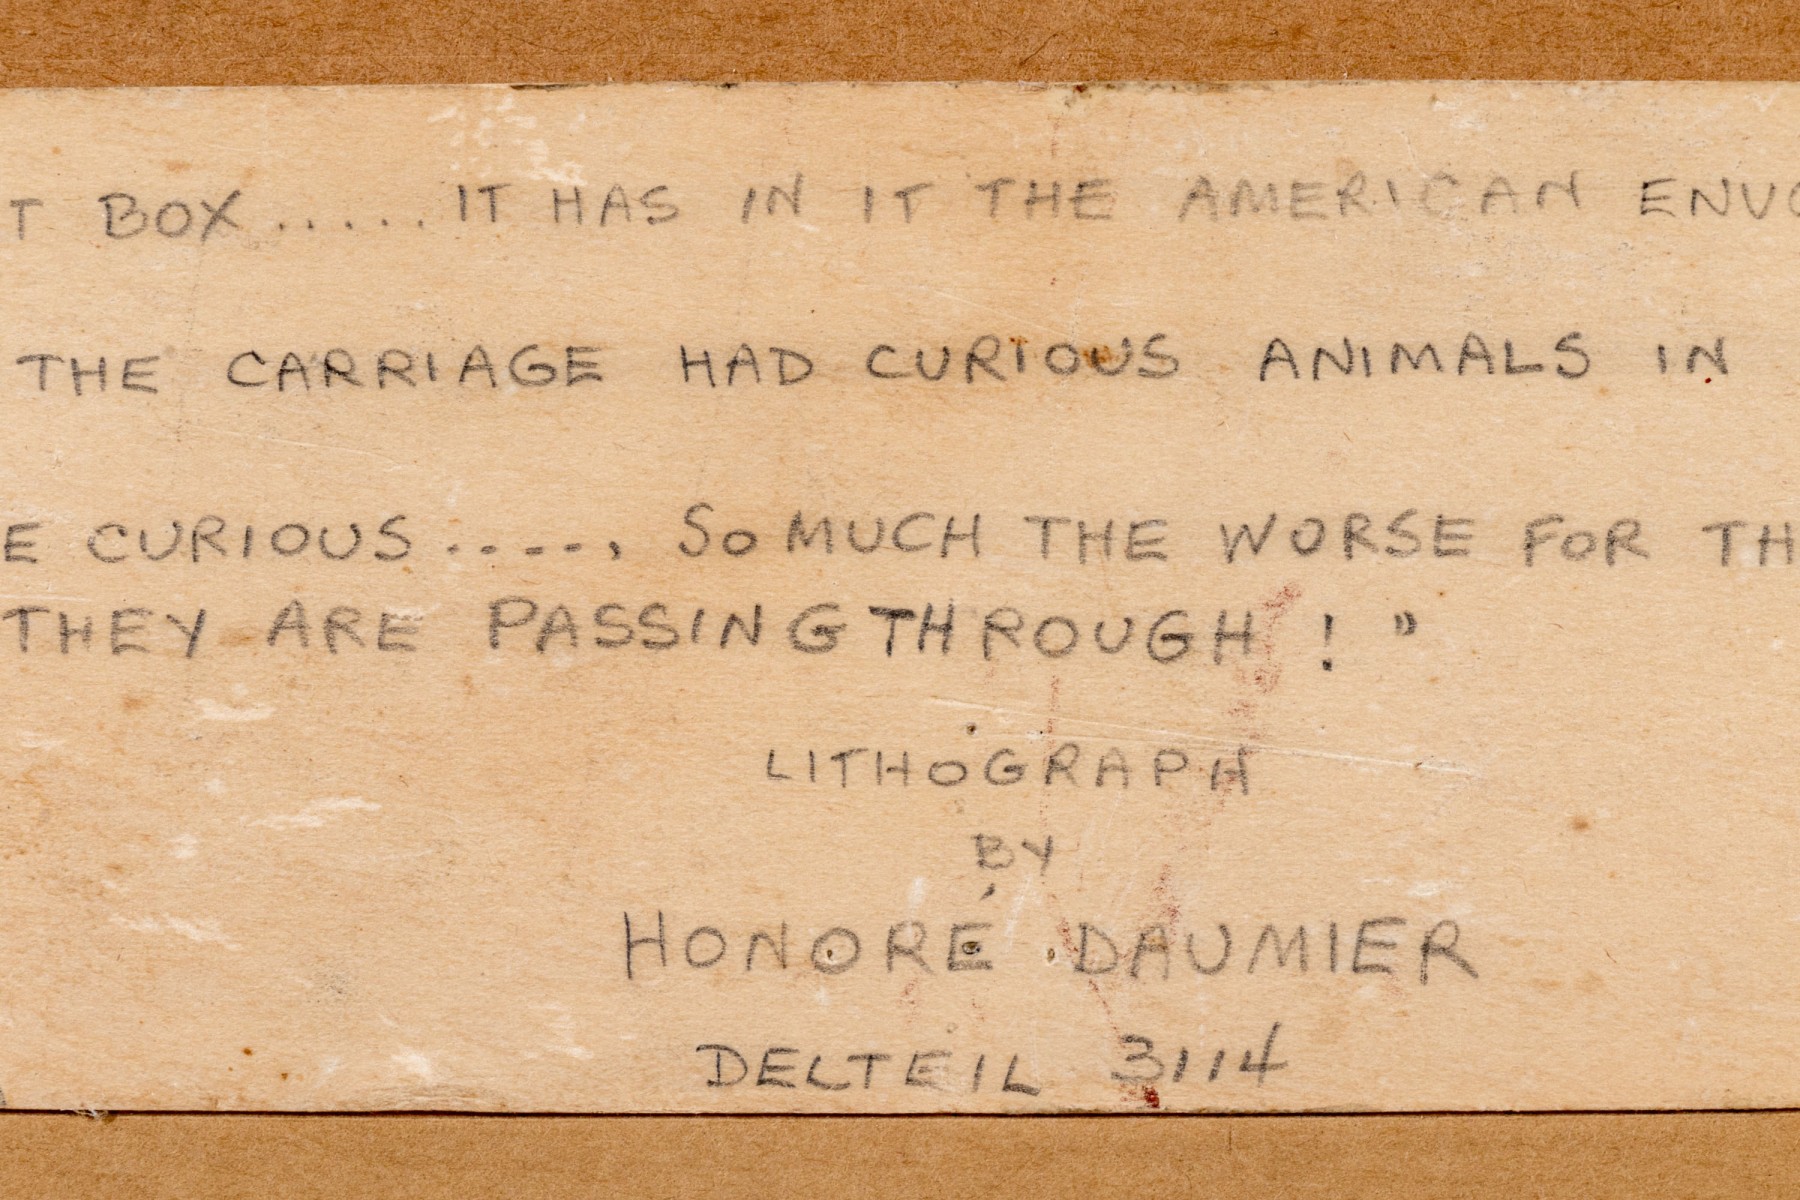 T BOX.....IT HAS IN IT THE AMERICAN ENVO
THE CARRIAGE HAD CURIOUS ANIMALS IN
E CURIOUS....., SO MUCH THE WORSE FOR TH
THEY ARE PASSING THROUGH!"
LITHOGRAPH
BY
HONORÉ DAUMIER
DELTEIL 3114